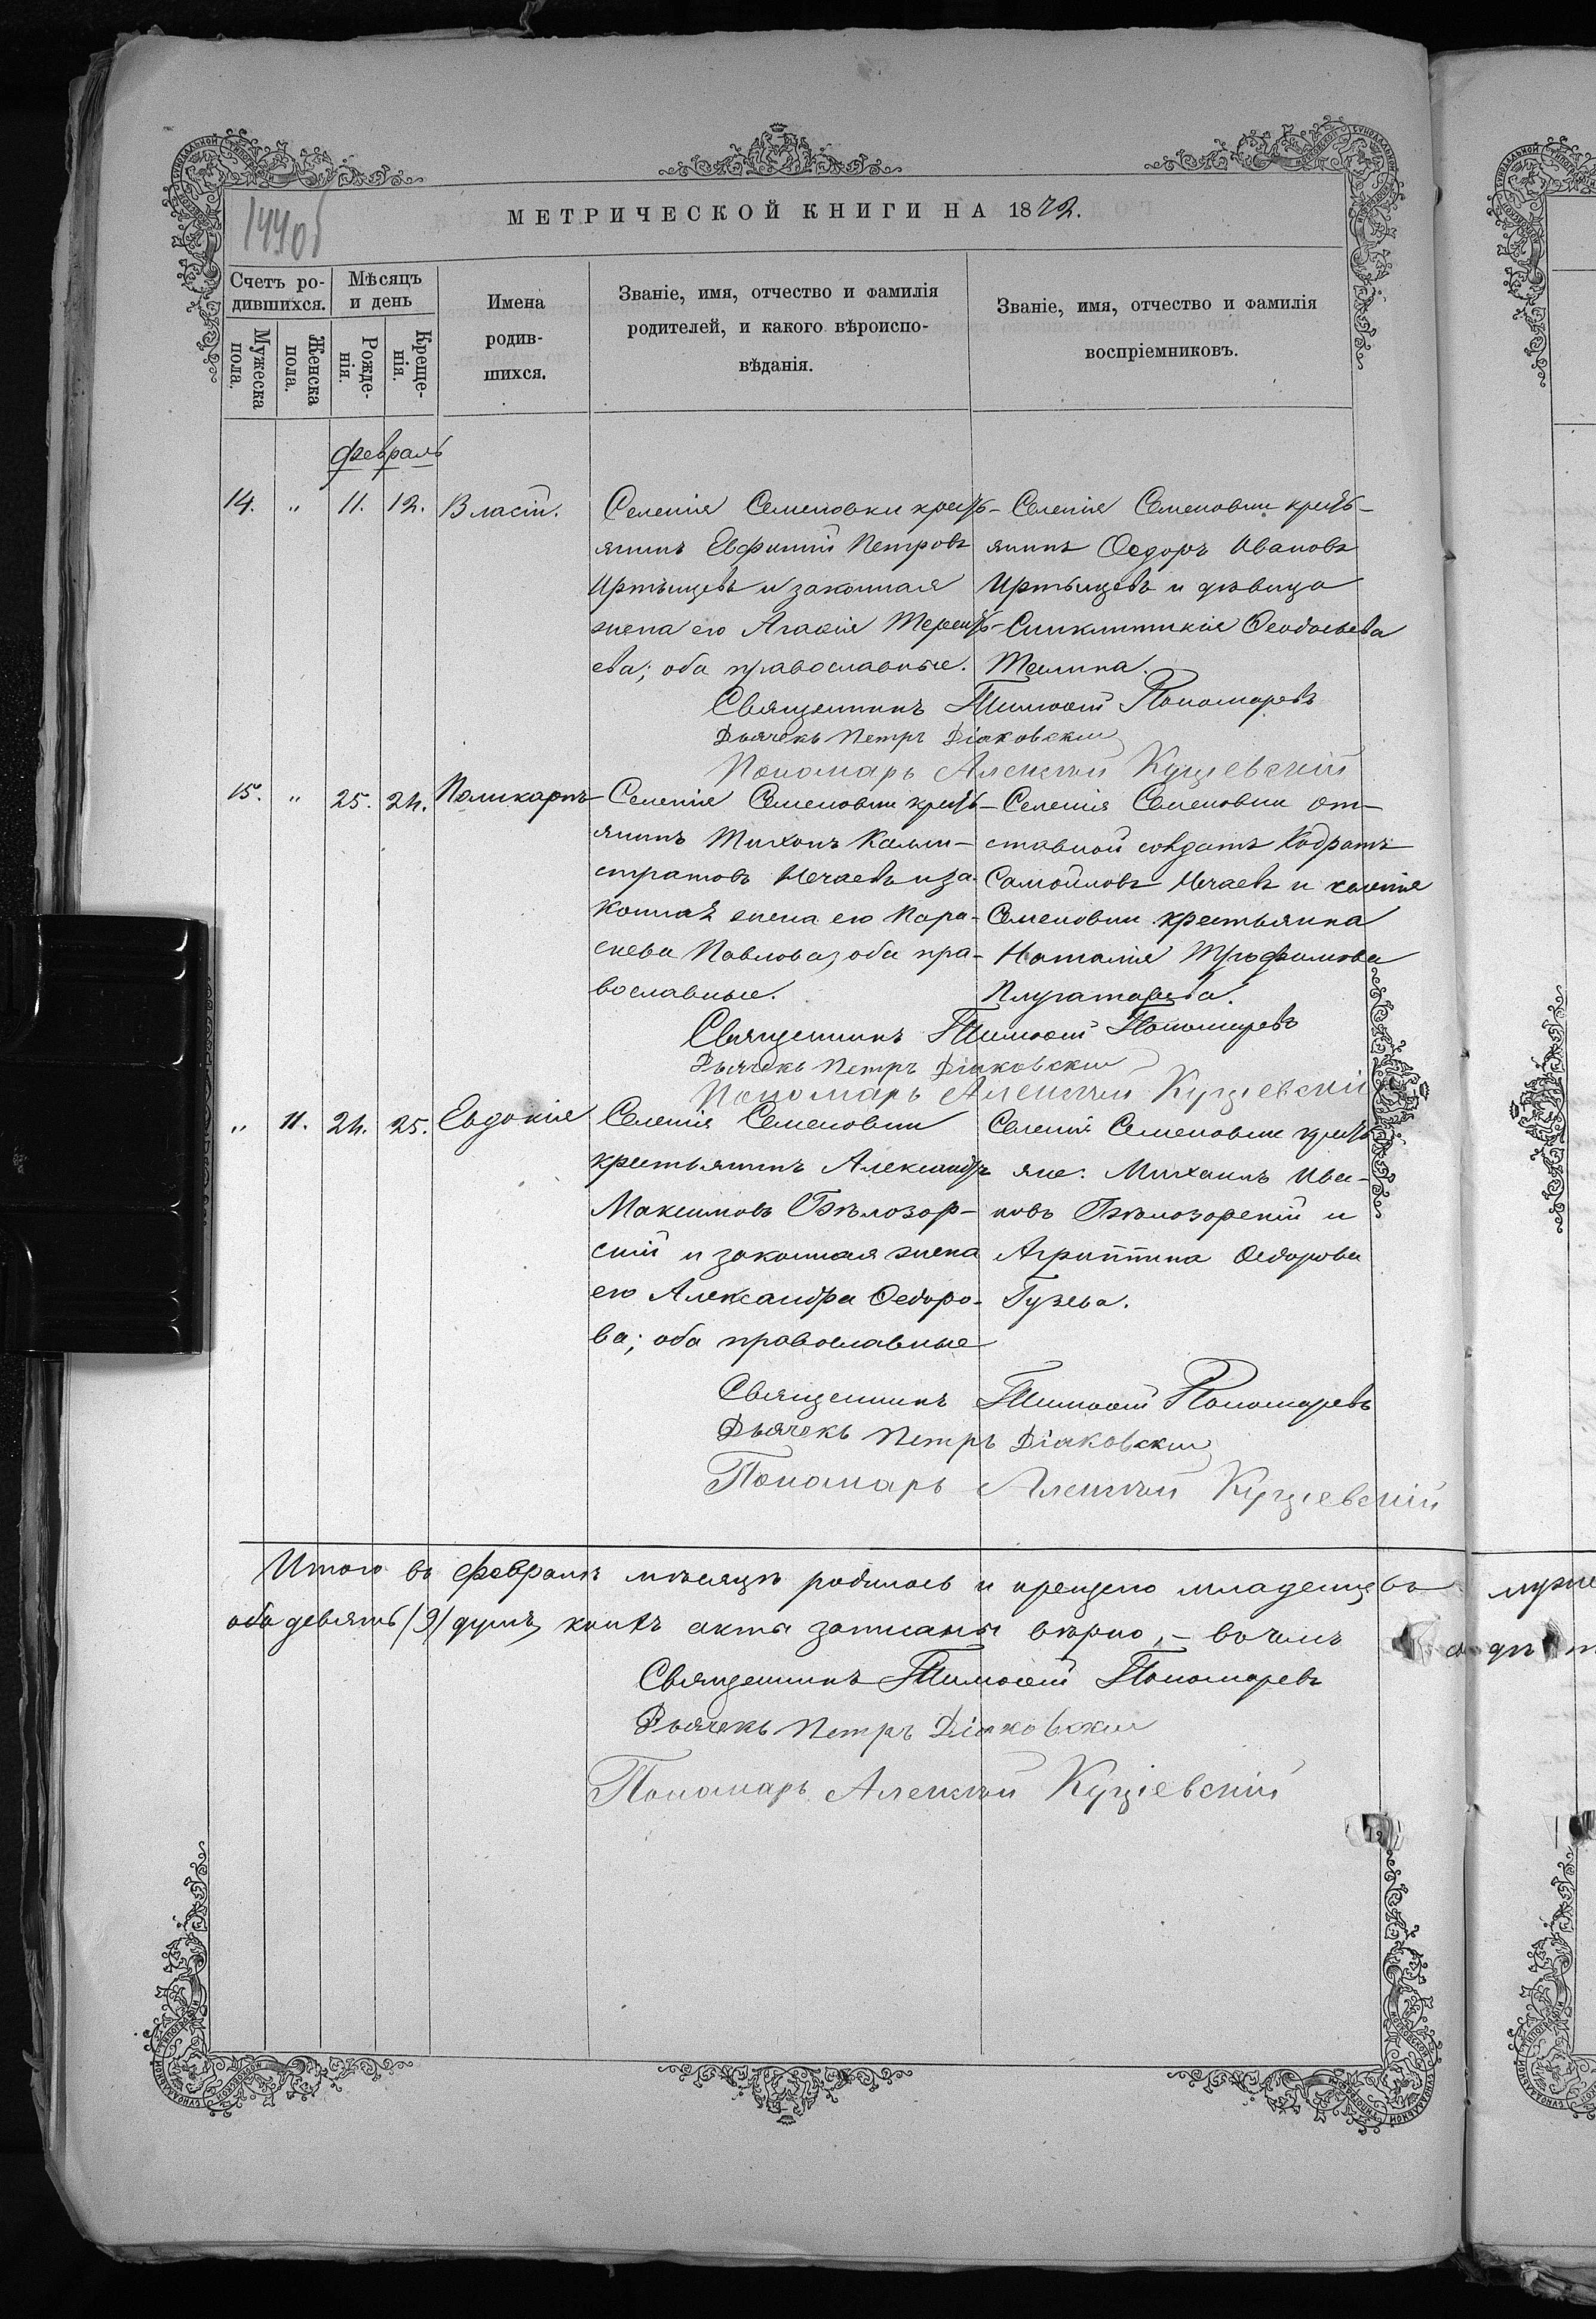 144об
МЕТРИЧЕСКОЙ КНИГИ НА 1872.
Счетъ ро-
дившихся.
Мѣсяцъ
и день
Мужеска
пола.
Женска
пола.
Рожде-
нія.
Креще-
нія.
Имена
родив-
шихся.
Званіе, имя, отчество и фамилія
родителей, и какого вѣроиспо-
вѣданія.
Званіе, имя, отчество и фамилія
воспріемниковъ.
февраль
14. " 11. 12. Власій.
Селенія Семеновки кресть-
янинъ Евфимій Петровъ
Иртыщевъ и законная
жена его Агафія Терентъ-
ева; оба православные.
Селенія Семеновки кресть-
янинъ Ѳедоръ Ивановъ
Иртыщевъ и дѣвица
Синклитикія Ѳеодосьева
Священникъ Тимоѳей Пономаревъ
Дьячекъ Петръ Діаковскій
Пономарь Алексѣй Куцевскій
15. " 25. 24. Поликарпъ
Селенія Семеновки кресть-
янинъ Тихонъ Калли-
стратовъ Нечаевъ и за-
конная жена его Пара-
скева Павлова; оба пра-
вославные.
Селенія Семеновки от-
ставной солдатъ Кодратъ
Самойловъ Нечаевъ и селенія
Семеновки крестьянка
Наталія Трофимова
Плугатарева.
Священникъ Тимоѳей Пономаревъ
Дьячекъ Петръ Діаковскій
Пономарь Алексѣй Куцевскій
" 11. 24. 25. Евдокія
Селенія Семеновки
крестьянинъ Александръ
Максимовъ Бѣлозор-
скій и законная жена
его Александра Ѳедоро-
ва; оба православные
Селенія Семеновки кресть-
яне: Михаилъ Ива-
новъ Бѣлозорскій и
Агриппина Ѳедорова
Гузева.
Священникъ Тимоѳей Пономаревъ
Дьячекъ Петръ Діаковскій
Пономарь Алексѣй Куцевскій
Итого въ февралѣ мѣсяцѣ родилось и крещено младенцевъ
оба девять (9) душъ, коихъ акты записаны вѣрно, – въ чемъ
Священникъ Тимоѳей Пономаревъ
Дьячекъ Петръ Діаковскій
Пономарь Алексѣй Куцевскій